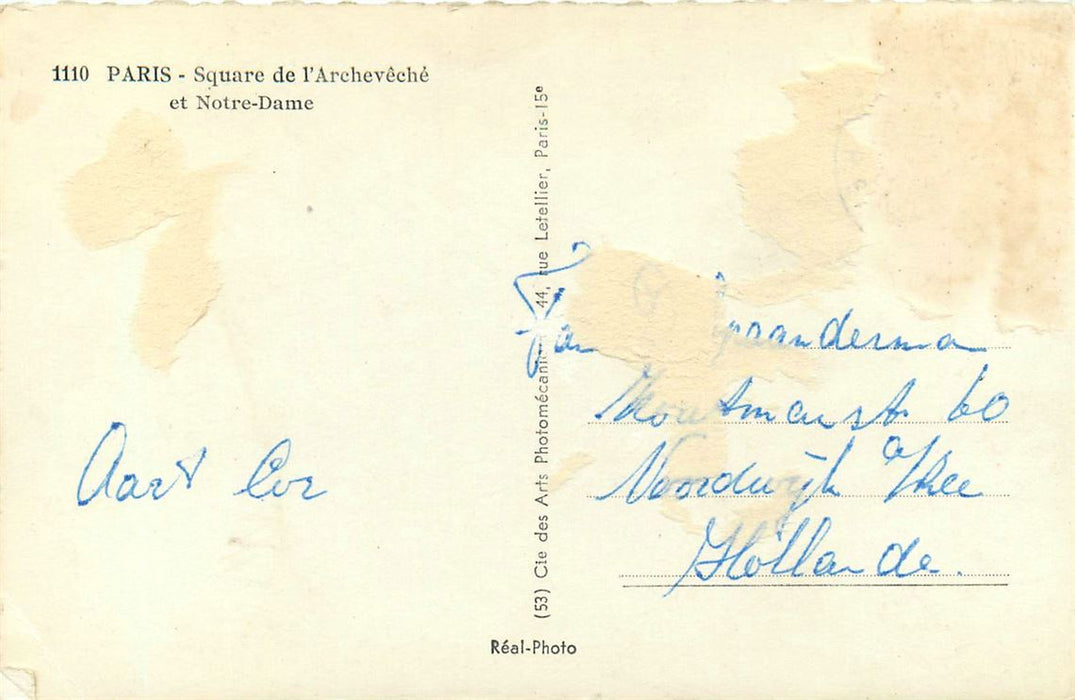 1110 PARIS - Square de l'Archevêché
et Notre-Dame
(53) Cie des Arts Photomécaniques 44, rue Letellier, Paris-15e
Fam
60
Noordwijk a/Zee
Hollande.
Aart Cor
Réal-Photo